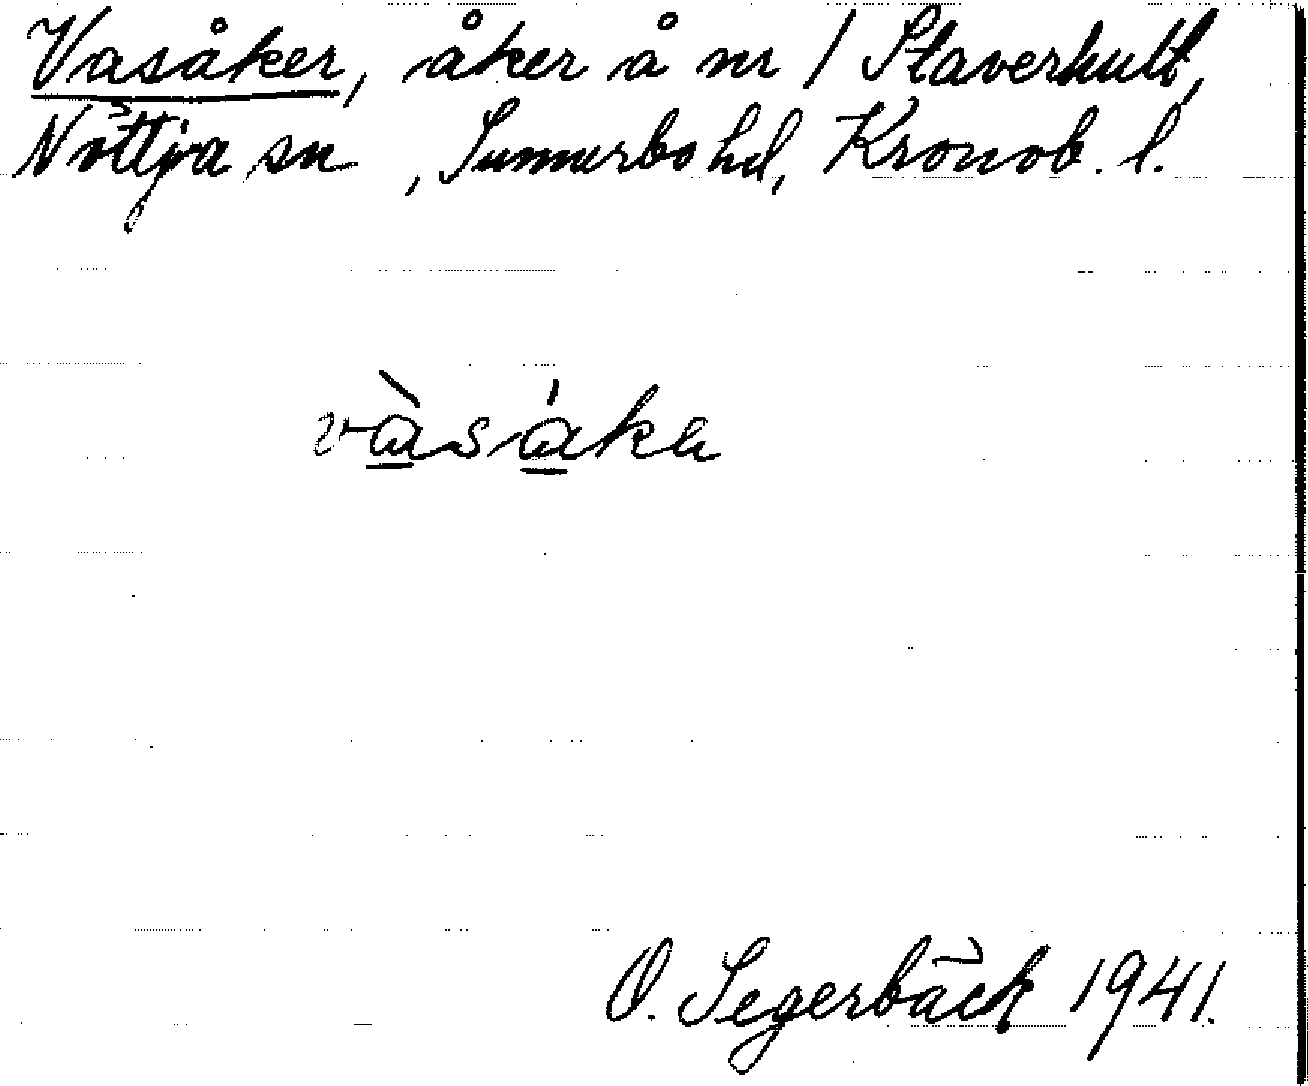 Vasåker, åker å nr 1 Staverhult,
Nöttja sn, Sunnerbo hd, Kronob. l.
O. Segerbäck 1941.